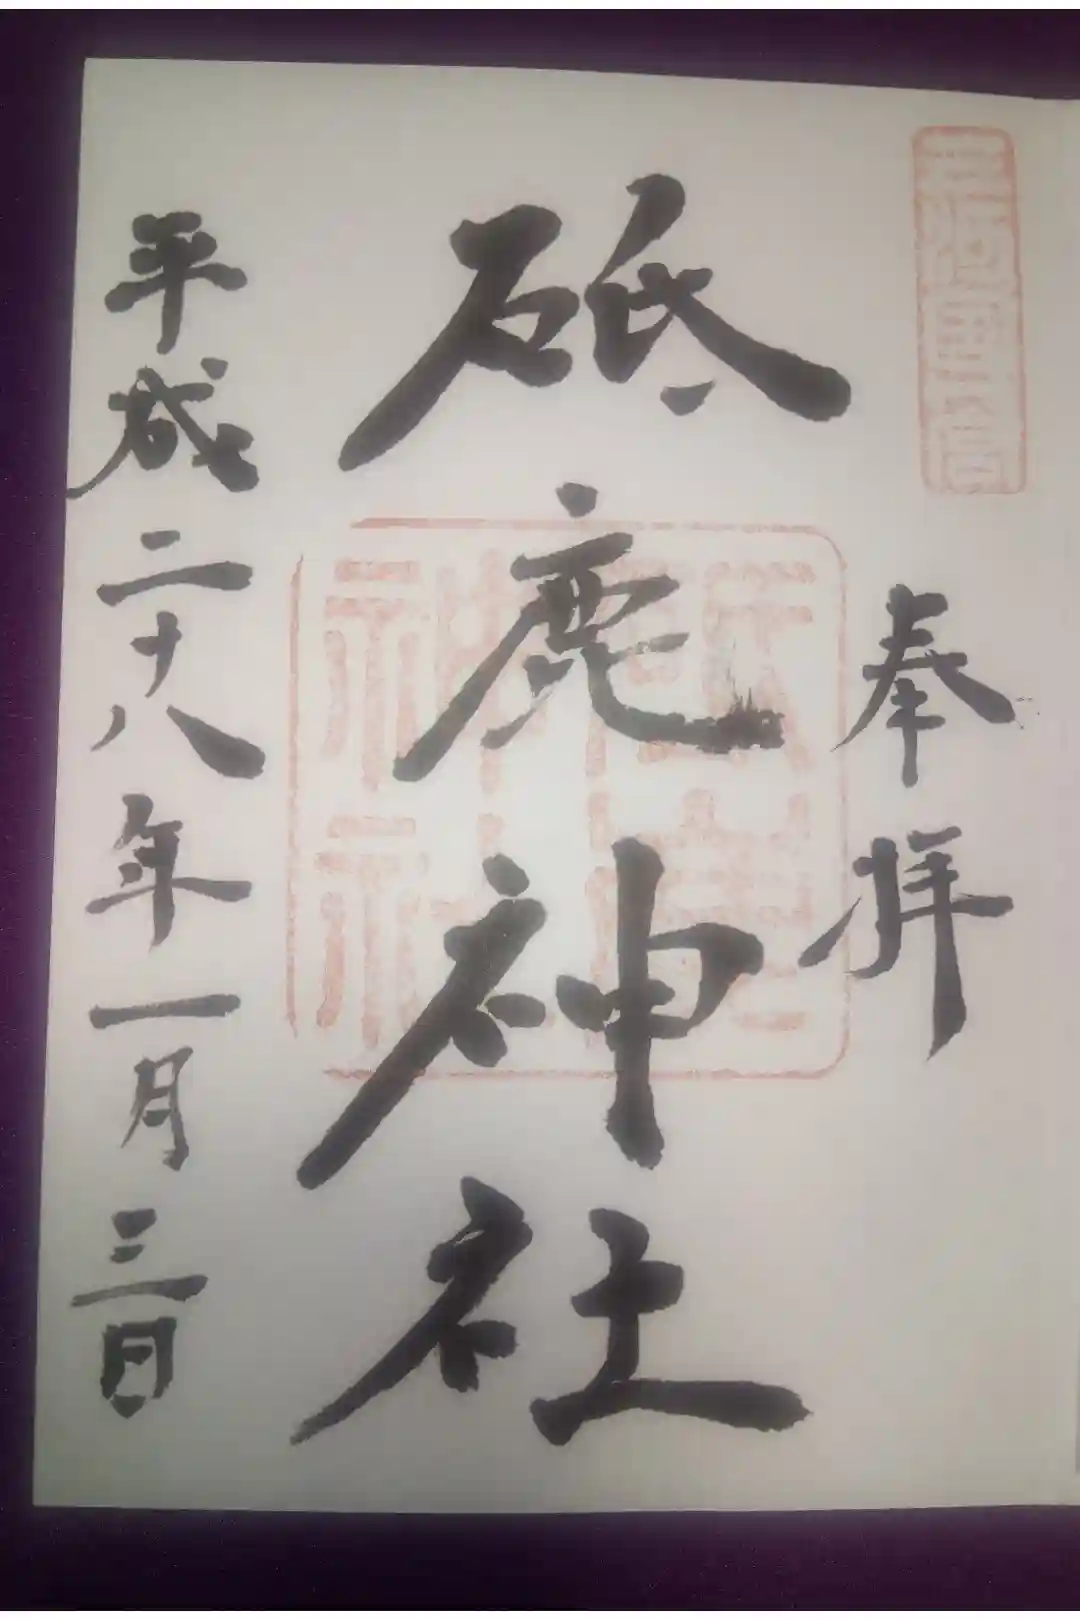 三河國一宮
奉拝
砥鹿神社
平成二十八年一月三日
砥鹿
神社